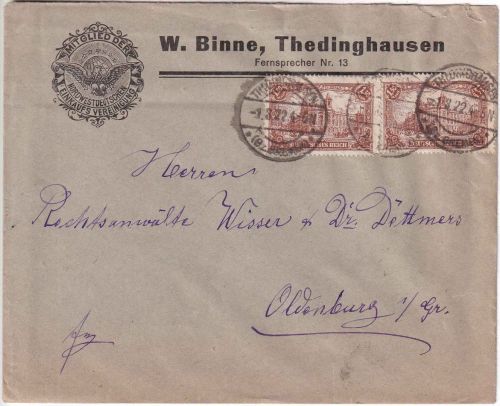 MITGLIED DER
NORDWESTDEUTSCHEN
EINKAUFSVEREINIGUNG
W. Binne, Thedinghausen
Fernsprecher Nr. 13
THEDINGHAUSEN
DEUTSCHES REICH
Herren
Rechtsanwälte Wisser & Dr. Dettmers
Oldenburg i/Gr.